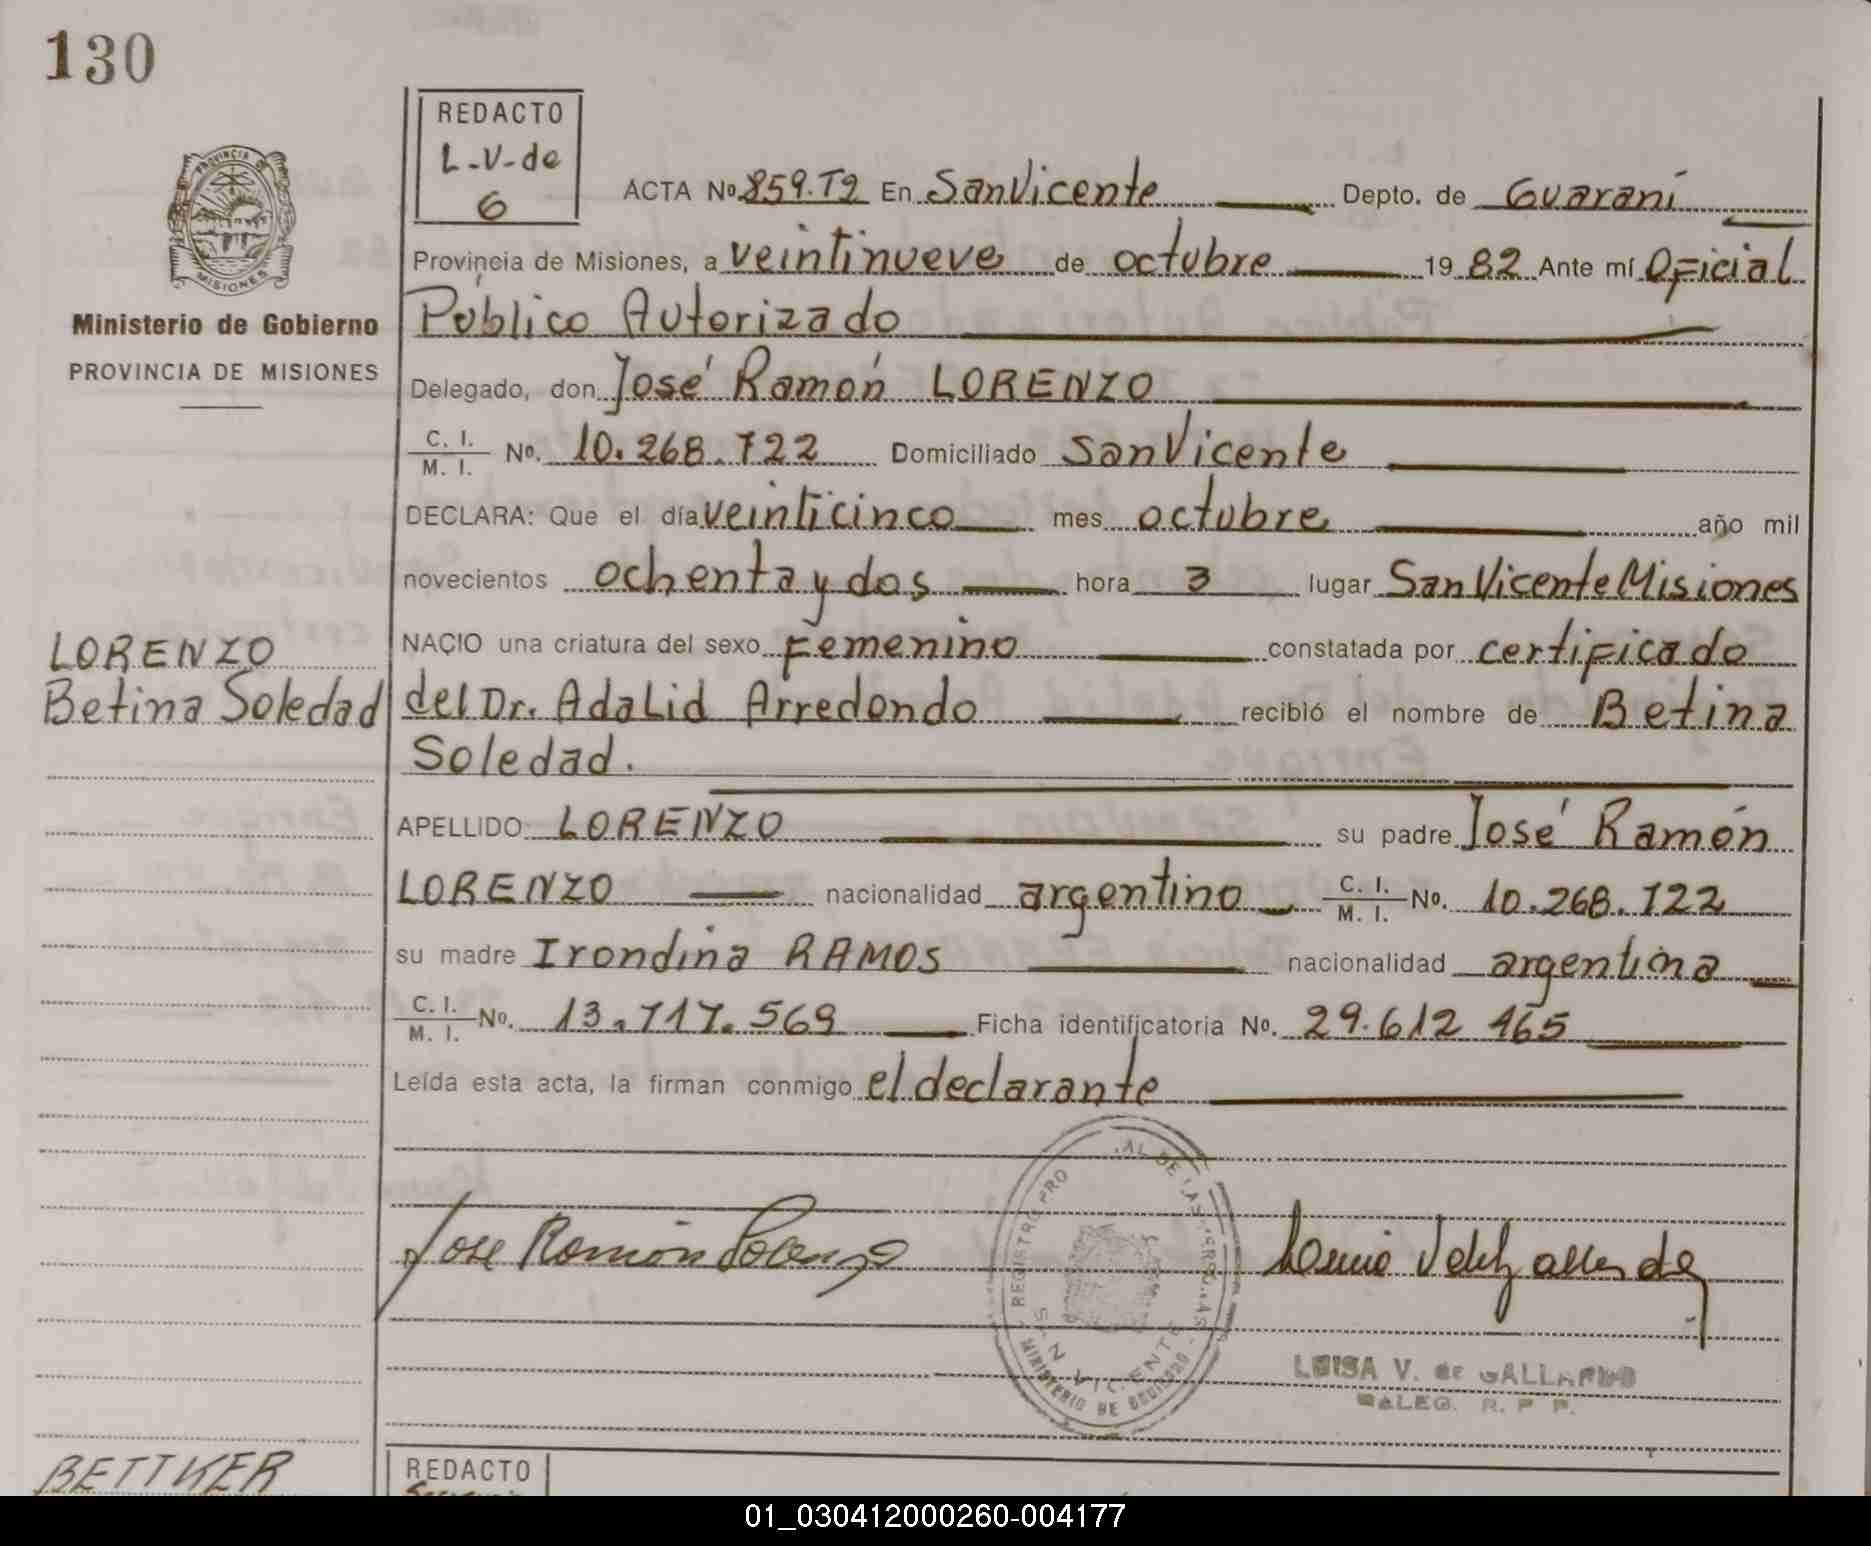 130
REDACTO
L-V-de
G
PROVINCIA DE
MISIONES
Ministerio de Gobierno
PROVINCIA DE MISIONES
ACTA No 859.T2 En San Vicente Depto. de Guaraní
Provincia de Misiones, a veintinueve de octubre 1982 Ante mí Oficial
Público Autorizado
Delegado, don José Ramón LORENZO
C. I. / M. I. No. 10.268.722 Domiciliado San Vicente
DECLARA: Que el día veinticinco mes octubre año mil
novecientos ochenta y dos hora 3 lugar San Vicente Misiones
LORENZO
Betina Soledad
NACIO una criatura del sexo Femenino constatada por certificado
del Dr. Adalid Arredondo recibió el nombre de Betina
Soledad.
APELLIDO LORENZO su padre José Ramón
LORENZO nacionalidad argentino C. I. / M. I. No. 10.268.722
su madre Irondina RAMOS nacionalidad argentina
C. I. / M. I. No. 13.717.569 Ficha identificatoria No. 29.612 465
Leída esta acta, la firman conmigo el declarante
Jose Ramón Lorenzo
REGISTRO PRO AL DE LAS PERSONAS
SAN VICENTE
MINISTERIO DE GOBIERNO
LUISA V. de GALLARDO
DELEG. R. P. P.
BETTKER
REDACTO
01_030412000260-004177